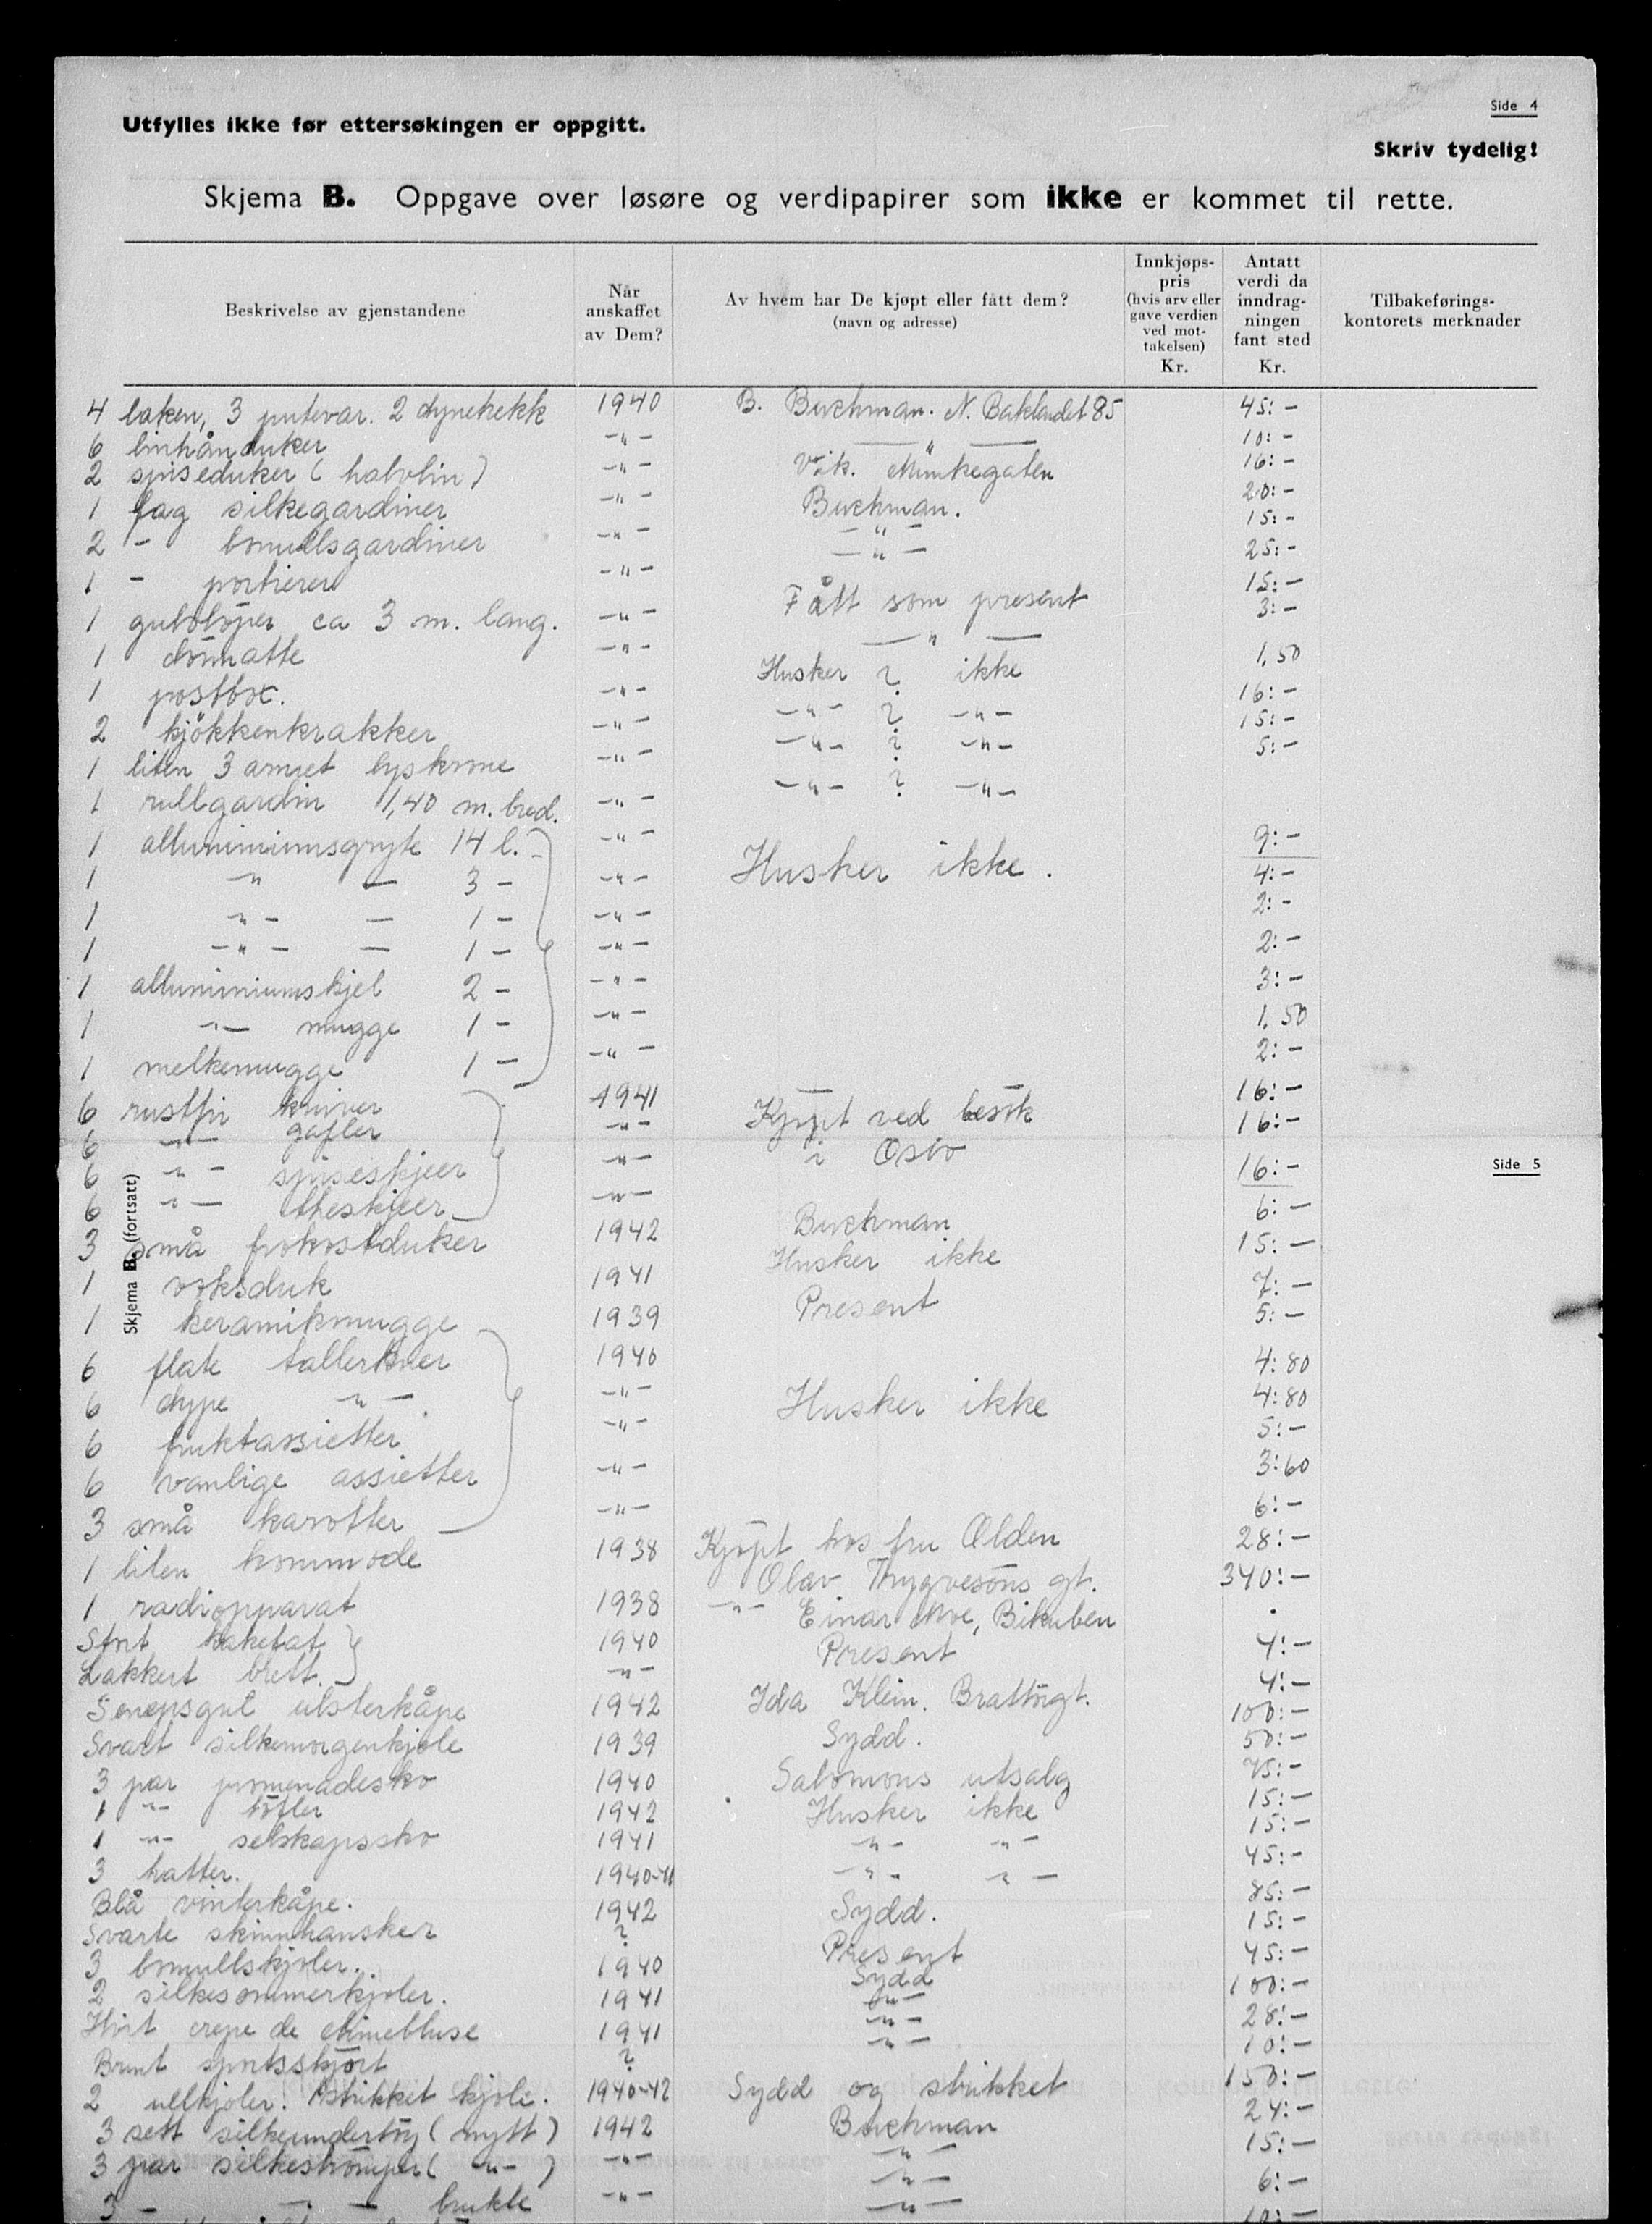 Side 4
Utfylles ikke før ettersøkingen er oppgitt.
Skriv tydelig!
Skjema B. Oppgave over løsøre og verdipapirer som ikke er kommet til rette.
Beskrivelse av gjenstandene
Når anskaffet av Dem?
Av hvem har De kjøpt eller fått dem? (navn og adresse)
Innkjøps-pris (hvis arv eller gave verdien ved mot-takelsen) Kr.
Antatt verdi da inndrag-ningen fant sted Kr.
Tilbakeførings-kontorets merknader
4 laken, 3 putevar. 2 dynetrekk 1940 B. Buchman. N. Baklandet 85 45:-
6 linhånduker -"- -"- 10:-
2 spiseduker (halvlin) -"- Vik. Munkegaten 16:-
1 fag silkegardiner -"- Buchman. 20:-
2 - bomullsgardiner -"- -"- 15:-
1 - portierer -"- -"- 25:-
1 gulvløper ca 3 m. lang. -"- Fått som present 15:-
1 dørmatte -"- -"- 3:-
1 postbox. -"- Husker ? ikke 1,50
2 kjökkenkrakker -"- -"- ? -"- 16:-
1 liten 3 armet lyskrone -"- -"- ? -"- 15:-
1 rullgardin 1,40 m. bred. -"- -"- ? -"- 5:-
1 alluminiumsgryte 14 l. -"- Husker ikke. 9:-
1 -"- - 3 - -"- 4:-
1 -"- - 1 - -"- 2:-
1 -"- - 1 - -"- 2:-
1 alluminiumskjel 2 - -"- 3:-
1 -"- mugge 1 - -"- 1,50
1 melkemugge 1 - -"- 2:-
6 rustfri kniver 1941 Kjøpt ved besök 16:-
6 -"- gafler -"- i Oslo 16:-
Side 5
Skjema B. (fortsatt)
6 -"- spiseskjeer -"- 16:-
6 -"- theskjeer -"- 6:-
3 små frokostduker 1942 Buchman 15:-
1 voksduk 1941 Husker ikke 7:-
1 keramikmugge 1939 Present 5:-
6 flate tallerkner 1940 4:80
6 dype -"- -"- Husker ikke 4:80
6 fruktassietter -"- 5:-
6 vanlige assietter -"- 3:60
3 små karotter -"- 6:-
1 liten kommode 1938 Kjøpt hos fru Olden 28:-
Olav Trygvesöns gt.
1 radioapparat 1938 -"- Einar Moe, Bikuben 340:-
Stort kakefat 1940 Present 4:-
Lakkert brett. -"- 4:-
Senepsgul ulsterkåpe 1942 Ida Klein. Brattörgt. 100:-
Svart silkemorgenkjole 1939 Sydd. 50:-
3 par promenadesko 1940 Salomons utsalg 75:-
1 -"- töfler 1942 Husker ikke 15:-
1 -"- selskapssko 1941 -"- -"- 15:-
3 hatter. 1940-41 -"- -"- 45:-
Blå vinterkåpe. 1942 Sydd. 85:-
Svarte skinnhansker ? Present 15:-
3 bomullskjoler. 1940 Sydd 45:-
2 silkesommerkjoler. 1941 -"- 100:-
Hvit crepe de chinebluse 1941 -"- 28:-
Brunt sportsskjört ? -"- 10:-
2 ullkjoler. 1 strikket kjole. 1940-42 Sydd og strikket 150:-
3 sett silkeundertöy (nytt) 1942 Buchman 24:-
3 par silkeströmper ( -"- ) -"- -"- 15:-
3 - -"- - brukte -"- -"- 6:-
-"- 10:-